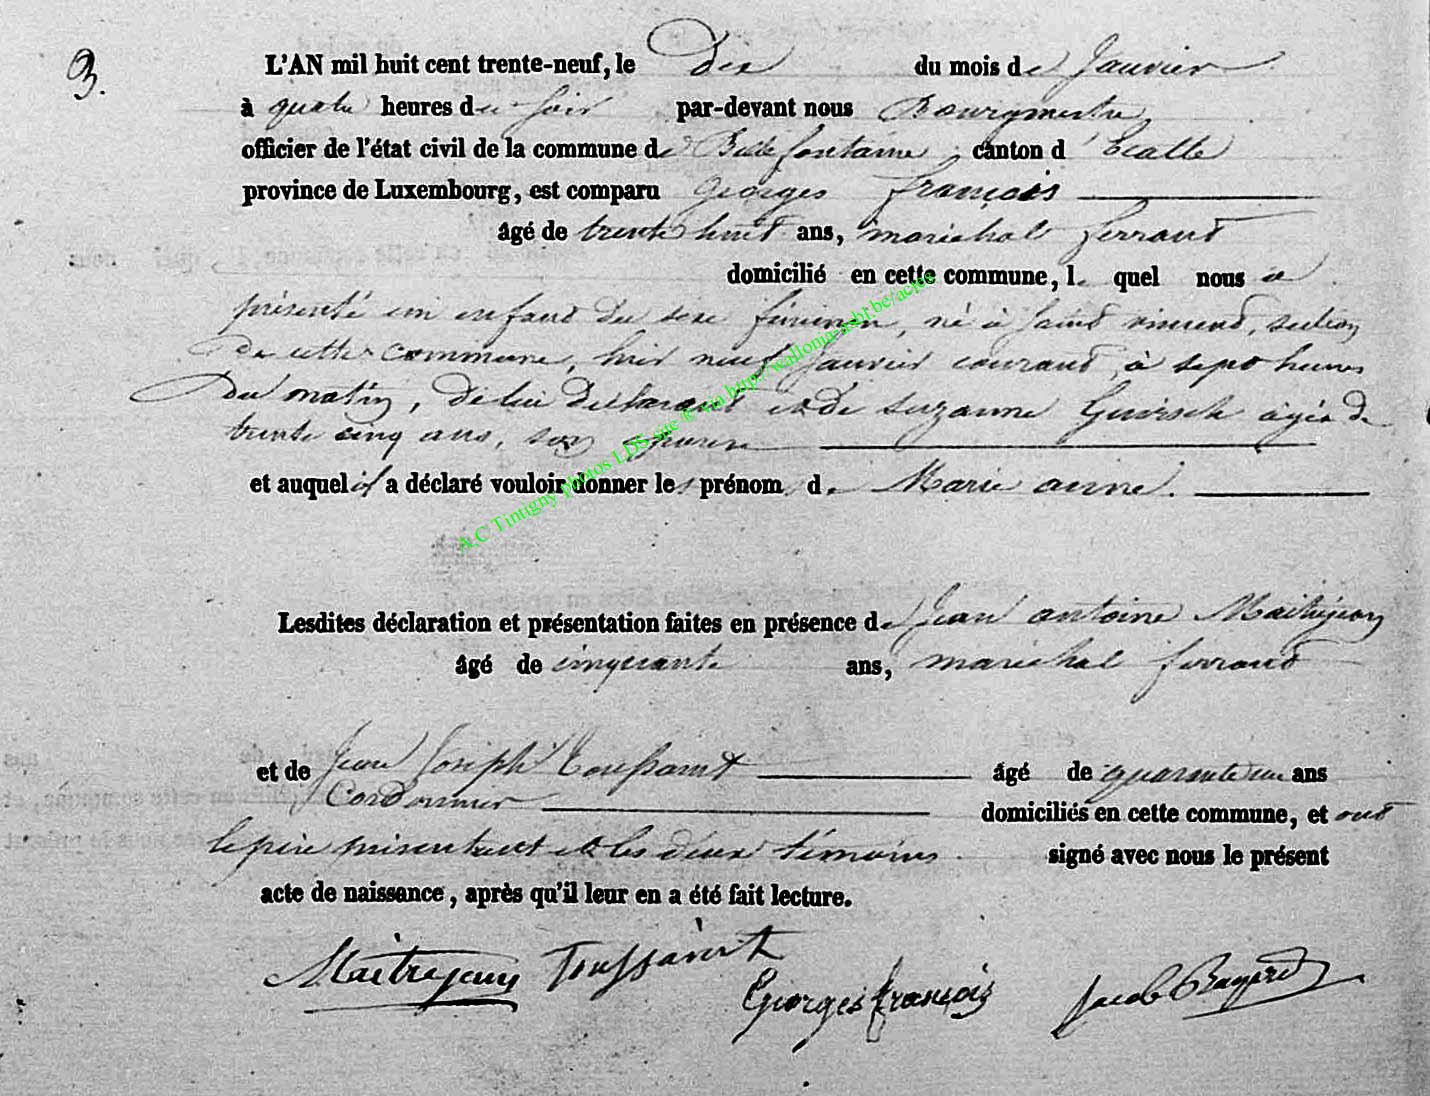 3.
L'AN mil huit cent trente-neuf, le dix du mois de Janvier
à quatre heures du soir par-devant nous Bourgmestre
officier de l'état civil de la commune de Bellefontaine canton d'Etalle
province de Luxembourg, est comparu Georges François
âgé de trente huit ans, maréchal ferrant
domicilié en cette commune, le quel nous a
présenté un enfant du sexe féminin, né à Saint vincent, section
de cette commune, hier neuf Janvier courant, à sept heures
du matin, de lui déclarant et de Suzanne Guirsch âgée de
trente cinq ans, son épouse
et auquel il a déclaré vouloir donner les prénoms de Marie anne.
Lesdites déclaration et présentation faites en présence de Jean antoine Maitrejean
âgé de cinquante ans, maréchal ferrant
et de Jean Joseph Toussaint âgé de quarante un ans
Cordonnier domiciliés en cette commune, et ont
le père présentant et les deux témoins signé avec nous le présent
acte de naissance, après qu'il leur en a été fait lecture.
Maitrejean Toussaint
Georges françois Jacob
A.C Tintigny photos LDS site © via http://wallonia-asbl.be/actes